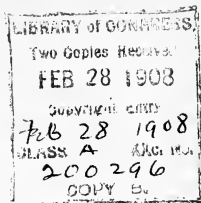 LIBRARY of CONGRESS
Two Copies Received
FEB 28 1908
Copyright Entry
Feb 28 1908
CLASS A XXc. No.
200296
COPY B.